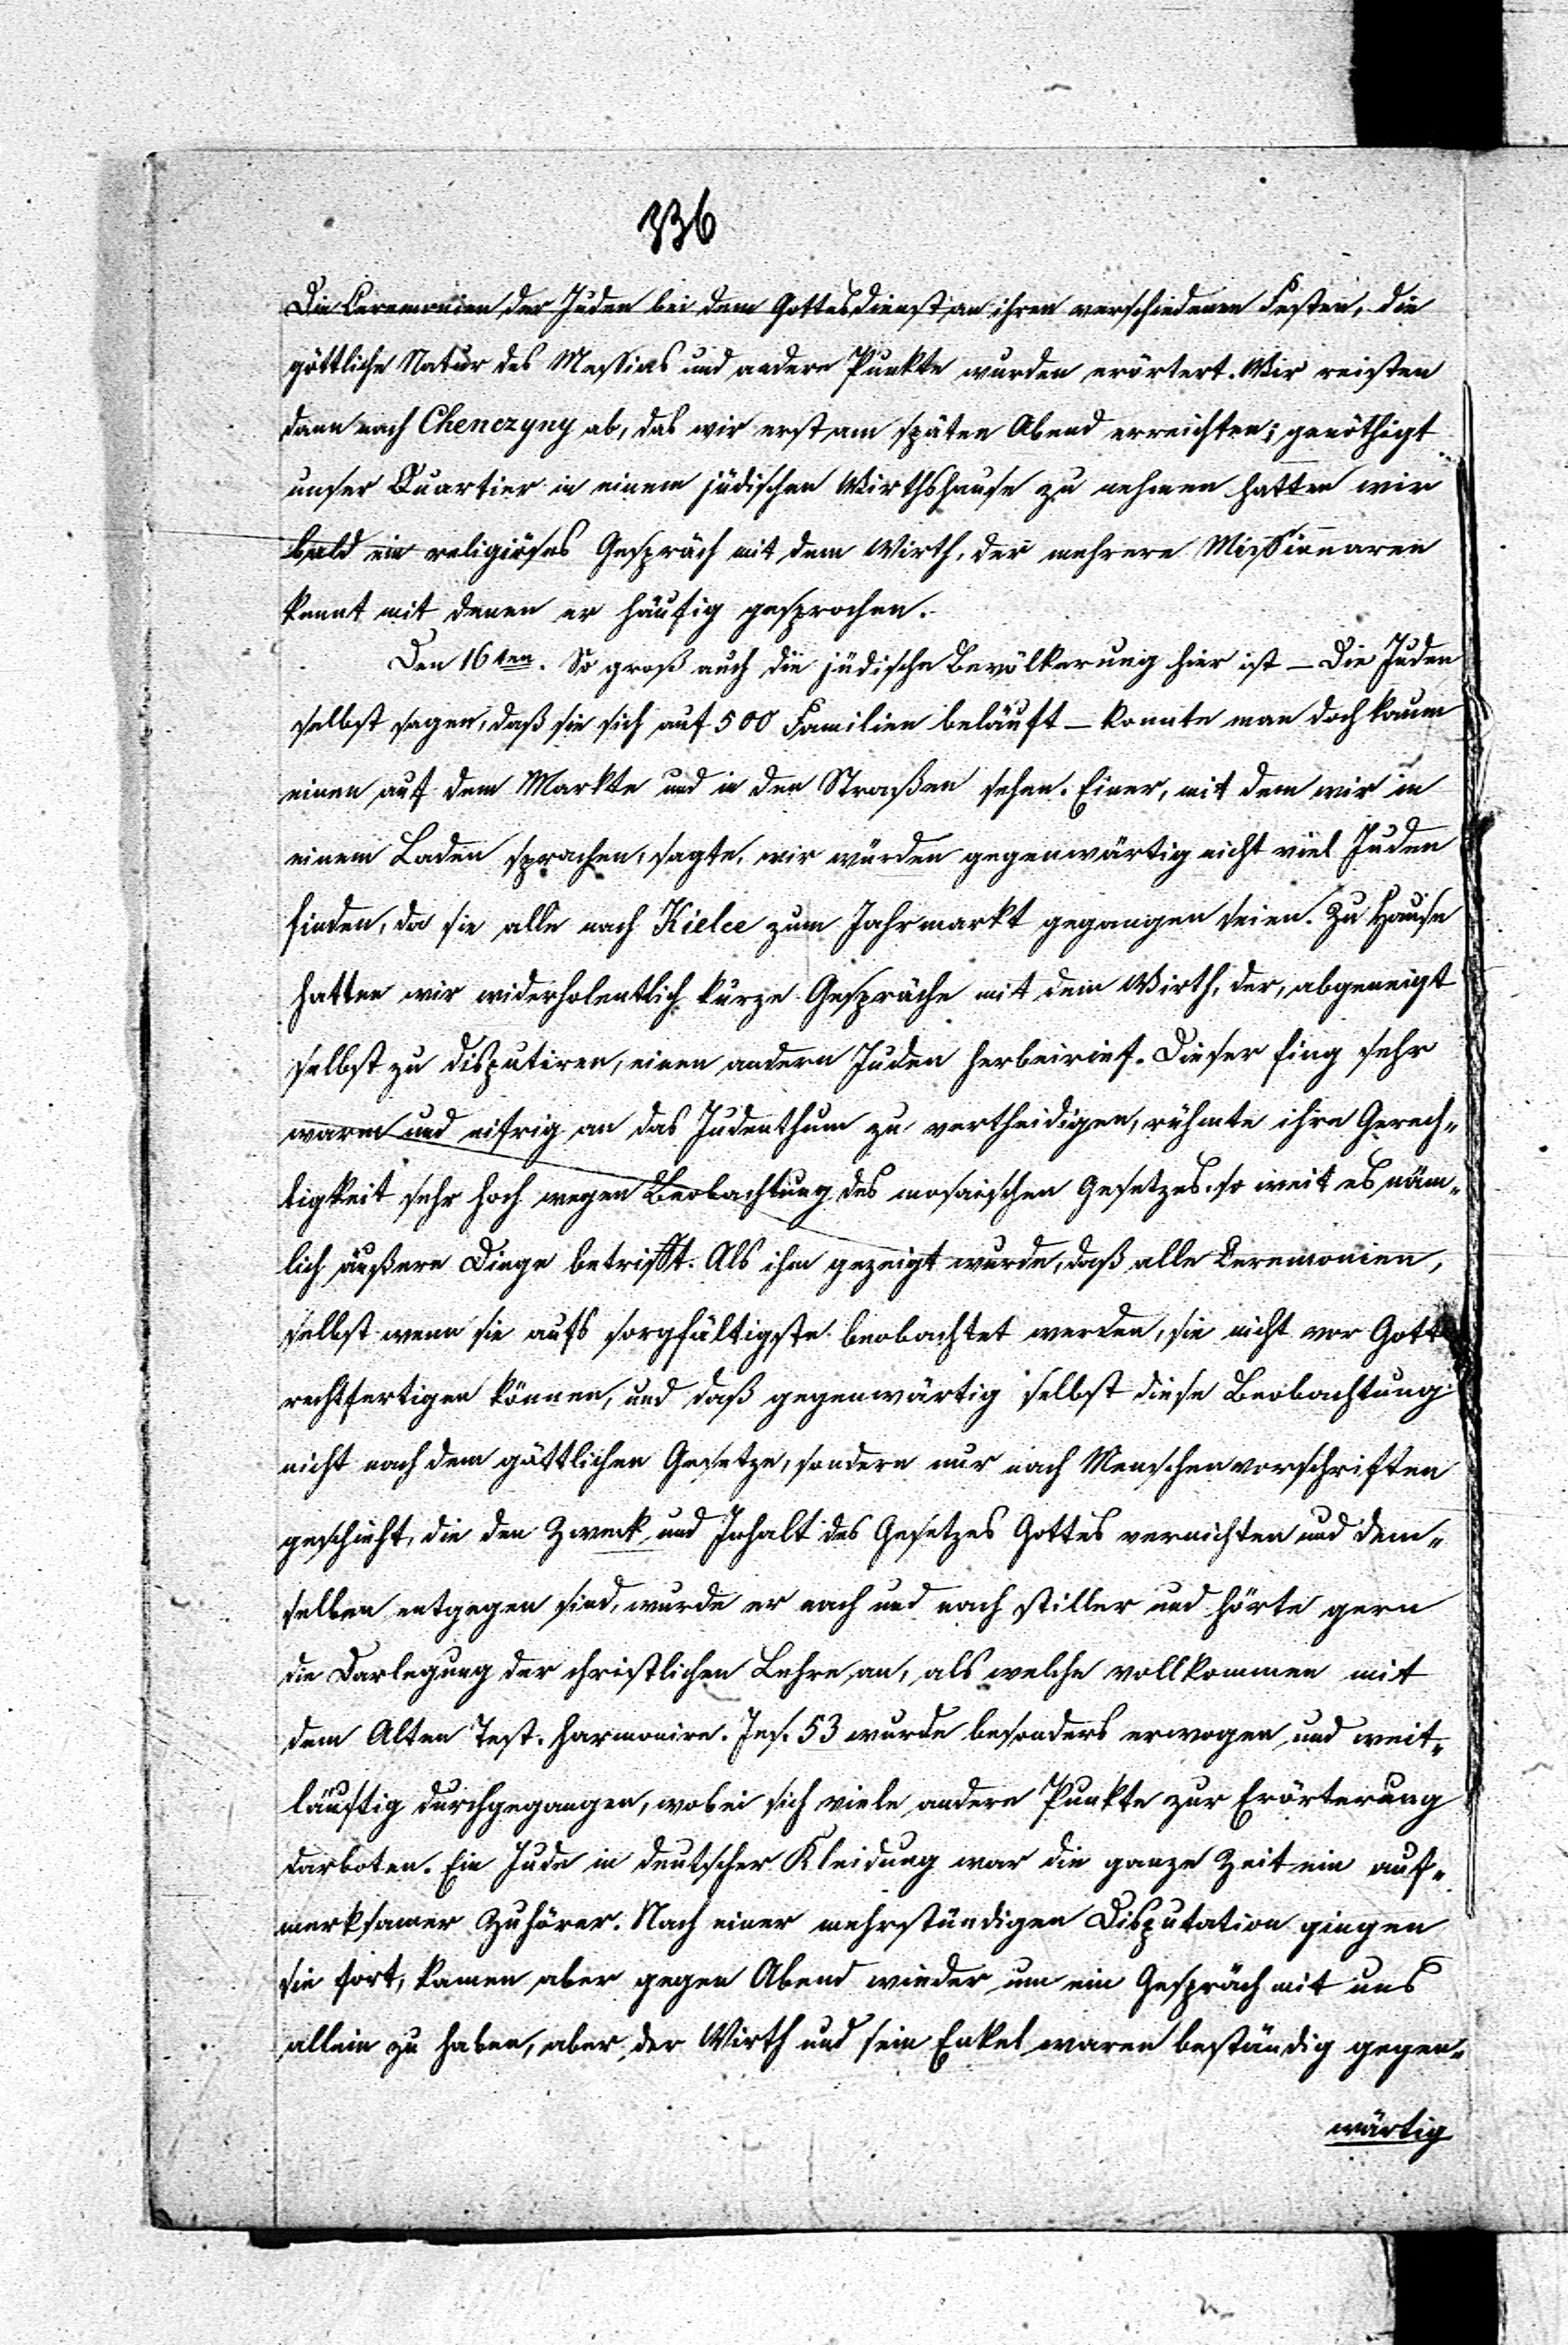 336
Die Ceremonien der Juden bei dem Gottesdienst an ihren verschiedenen Festen, die
göttliche Natur des Messias und andere Punkte wurden erörtert. Wir reisten
dann nach Chenczyny ab, das wir erst am späten Abend erreichten; genöthigt
unser Quartier in einem jüdischen Wirthshause zu nehmen hatten wir
bald ein religiöses Gespräch mit dem Wirth, der mehrere Missionaren
kennt mit denen er häufig gesprochen.
Den 16ten. So groß auch die jüdische Bevölkerung hier ist – Die Juden
selbst sagen, daß sie sich auf 500 Familien beläuft – konnte man doch kaum
einen auf dem Markte und in den Straßen sehen. Einer, mit dem wir in
einem Laden sprachen, sagte, wir würden gegenwärtig nicht viel Juden
finden, da sie alle nach Kielce zum Jahrmarkt gegangen seien. Zu Hause
hatten wir widerholentlich kurze Gespräche mit dem Wirth, der, abgeneigt
selbst zu disputiren, einen andern Juden herbeirief. Dieser fing sehr
warm und eifrig an das Judenthum zu vertheidigen, rühmte ihre Gerech-
tigkeit sehr hoch wegen Beobachtung des mosaischen Gesetzes. so weit es näm-
lich äußere Dinge betrifft. Als ihm gezeigt wurde, daß alle Ceremonien,
selbst wenn sie aufs sorgfältigste beobachtet werden, sie nicht vor Gott
rechtfertigen können, und daß gegenwärtig selbst diese Beobachtung
nicht nach dem göttlichen Gesetze, sondern nur nach Menschenvorschriften
geschieht, die den Zweck und Inhalt des Gesetzes Gottes vernichten und dem-
selben entgegen sind, wurde er nach und nach stiller und hörte gern
die Darlegung der christlichen Lehre an, als welche vollkommen mit
dem Alten Test. harmonire. Jes. 53 wurde besonders erwogen und weit-
läuftig durchgegangen, wobei sich viele andere Punkte zur Erörterung
darboten. Ein Jude in deutscher Kleidung war die ganze Zeit ein auf-
merksamer Zuhörer. Nach einer mehrstündigen Disputation gingen
sie fort, kamen aber gegen Abend wieder um ein Gespräch mit uns
allein zu haben, aber der Wirth und sein Enkel waren beständig gegen-
wärtig